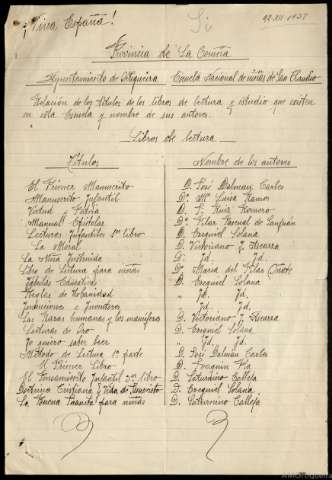 ¡Viva España!
Si
22-XII-1937
Provincia de La Coruña
Ayuntamiento de Ortigueira Escuela Nacional de niñas de San Claudio
Relación de los títulos de los libros de lectura y estudio que existen
en esta Escuela y nombre de sus autores.
Libros de lectura
Títulos Nombre de los autores
El Primer Manuscrito D. José Dalmau Carles
Manuscrito Infantil Dª Mª Luisa Ramos
Virtud y Patria D. J. Ruiz Romero
Manual Epistolar Dª Pilar Pascual de Sanjuán
Lecturas Infantiles 1er libro D. Ezequiel Solana
La Moral D. Victoriano F. Ascarza
La Niña Instruida D. Id. Id.
Libro de Lectura para niñas Dª María del Pilar
Fábulas Educativas D. Ezequiel Solana
Reglas de Urbanidad " Id. Id.
Invenciones e Inventores " Id. Id.
Las Razas humanas y los mamíferos D. Victoriano F. Ascarza
Lecturas de Oro D. Ezequiel Solana
Yo quiero saber leer " Id. Id.
Método de Lectura 1ª parte D. José Dalmau Carles
El Primer Libro D. Joaquin Pla
El Pensamiento Infantil 2º libro D. Saturnino Calleja
Doctrina Cristiana y Vida de Jesucristo D. Ezequiel Solana
La Buena Juanita para niñas D. Saturnino Calleja